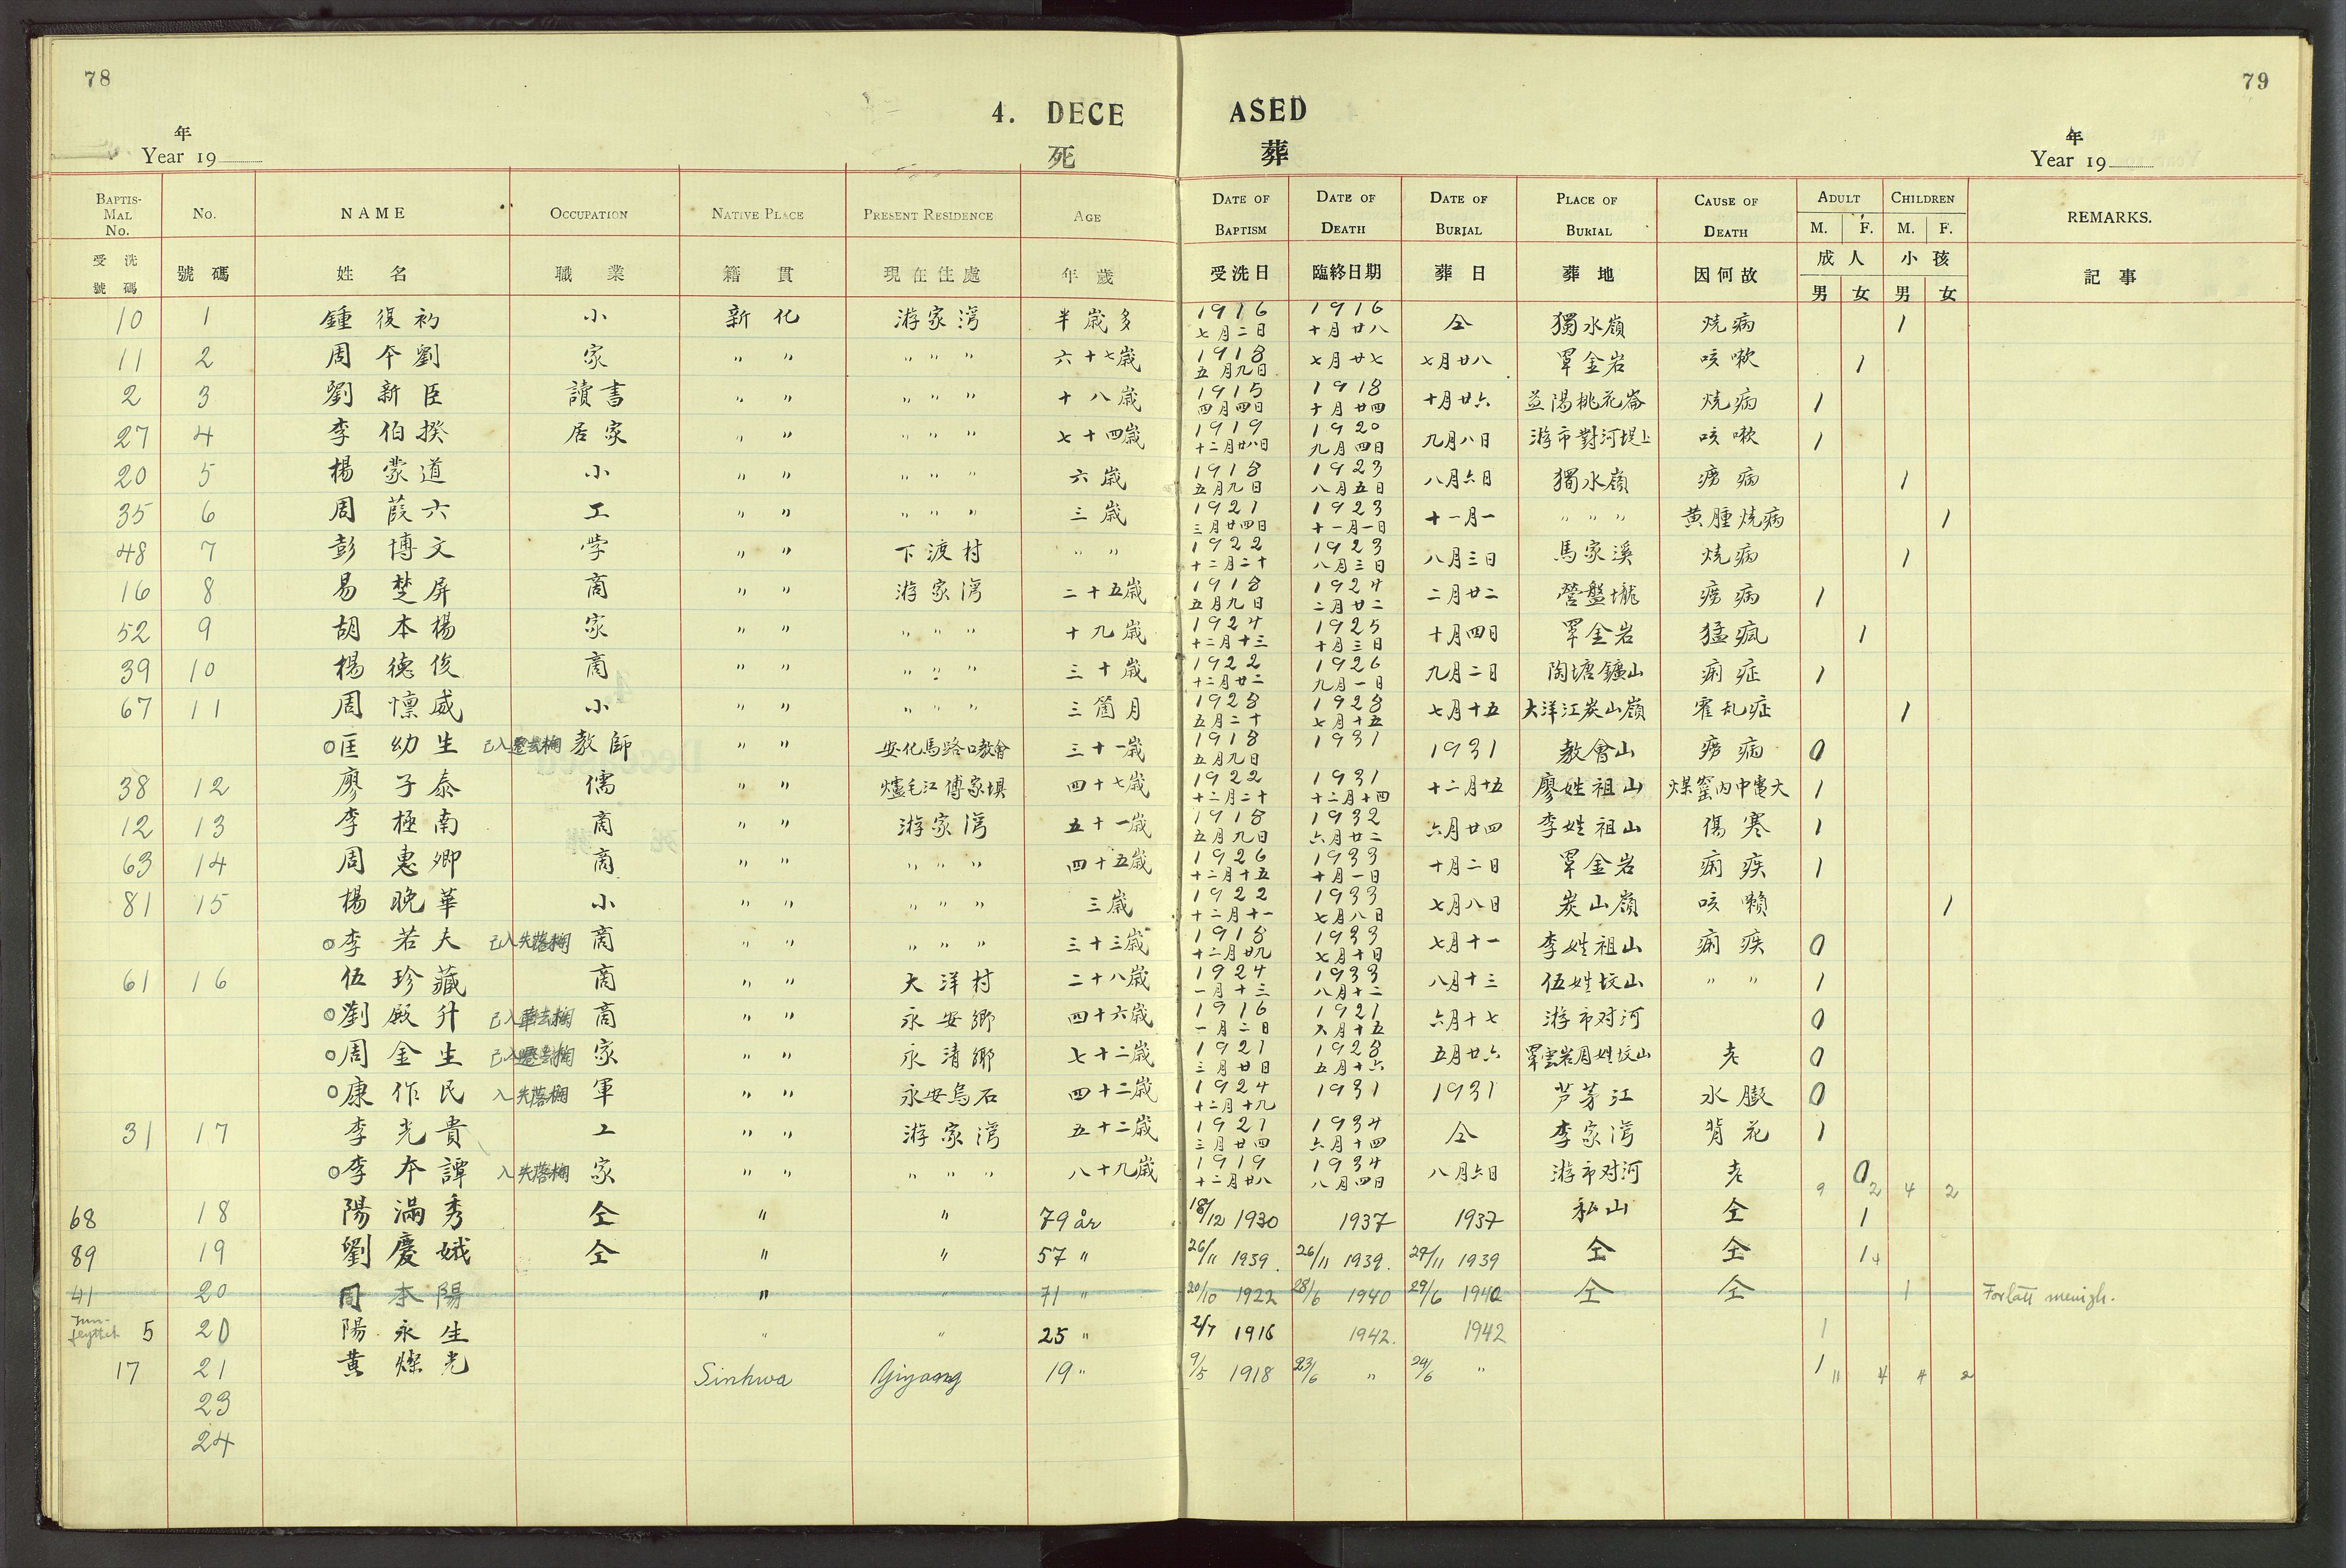 78
79
4. DECEASED
死 葬
年
Year 19
年
Year 19
BAPTISMAL No. No. NAME OCCUPATION NATIVE PLACE PRESENT RESIDENCE AGE DATE OF BAPTISM DATE OF DEATH DATE OF BURIAL PLACE OF BURIAL CAUSE OF DEATH ADULT M. F. CHILDREN M. F. REMARKS.
受洗號碼 號碼 姓名 職業 籍貫 現在住處 年歲 受洗日 臨終日期 葬日 葬地 因何故 成人 男 女 小孩 男 女 記事
10 1 鍾復初 小 新化 游家灣 半歲多 1916 七月二日 1916 十月廿八 仝 獨水嶺 燒病 1
11 2 周本劉 家 " " " " " 六十七歲 1918 五月九日 七月廿七 七月廿八 罩金岩 咳嗽 1
2 3 劉新臣 讀書 " " " " " 十八歲 1915 四月四日 1918 十月廿四 十月廿六 益陽桃花崙 燒病 1
27 4 李伯揆 居家 " " " " " 七十四歲 1919 十二月廿八日 1920 九月四日 九月八日 游市對河堤上 咳嗽 1
20 5 楊蒙道 小 " " " " " 六歲 1918 五月九日 1923 八月五日 八月六日 獨水嶺 癆病 1
35 6 周葭六 工 " " " " " 三歲 1921 三月廿四日 1923 十一月一日 十一月一 " " " 黄腫燒病 1
48 7 彭博文 学 " " 下渡村 " " 1922 十二月二十 1923 八月三日 八月三日 馬家溪 燒病 1
16 8 易楚屏 商 " " 游家灣 二十五歲 1918 五月九日 1924 二月廿二 二月廿二 營盤壠 癆病 1
52 9 胡本楊 家 " " " " " 十九歲 1924 十二月十三 1925 十月三日 十月四日 罩金岩 猛瘋 1
39 10 楊德俊 商 " " " " " 三十歲 1922 十二月廿二 1926 九月一日 九月二日 陶塘鑛山 痢症 1
67 11 周懍威 小 " " " " " 三箇月 1928 五月二十 1928 七月十五 七月十五 大洋江炭山嶺 霍乱症 1
○匡幼生 已入遷去欄 教師 " " 安化馬路口教會 三十一歲 1918 五月九日 1931 1931 教會山 癆病 0
38 12 廖子泰 儒 " " 爐毛江傅家垻 四十七歲 1922 十二月二十 1931 十二月十四 十二月十五 廖姓祖山 煤窰内中電大 1
12 13 李極南 商 " " 游家灣 五十一歲 1918 五月九日 1932 六月廿二 六月廿四 李姓祖山 傷寒 1
63 14 周惠卿 商 " " " " " 四十五歲 1926 十二月十五 1933 十月一日 十月二日 罩金岩 痢疾 1
81 15 楊晚華 小 " " " " " 三歲 1922 十二月十一 1933 七月八日 七月八日 炭山嶺 咳嗽 1
○李若夫 已入失落欄 商 " " " " " 三十三歲 1918 十二月廿九 1933 七月十日 七月十一 李姓祖山 痢疾 0
61 16 伍珍藏 商 " " 大洋村 二十八歲 1924 一月十三 1933 八月十二 八月十三 伍姓坟山 " " 1
○劉殿升 已入遷去欄 商 " " 永安鄉 四十六歲 1916 一月二日 1921 六月十五 六月十七 游市对河 0
○周金生 已入遷去欄 家 " " 永清鄉 七十二歲 1921 三月廿日 1928 五月十六 五月廿六 罩雲岩周姓坟山 老 0
○康作民 入失落欄 軍 " " 永安烏石 四十二歲 1924 十二月十九 1931 1931 芦茅江 水膨 0
31 17 李光貴 工 " " 游家灣 五十二歲 1921 三月廿四 1934 六月十四 仝 李家灣 背花 1
○李本譚 入失落欄 家 " " " " " 八十九歲 1919 十二月廿八 1934 八月四日 八月六日 游市对河 老 0
9 2 4 2
68 18 陽滿秀 仝 " " 79 år 18/12 1930 1937 1937 私山 仝 1
89 19 劉慶娥 仝 " " 57 " 26/11 1939. 26/11 1939. 29/11 1939 仝 仝 1 4
41 20 周本陽 " " 71 " 20/10 1922 28/6 1940 29/6 1940 仝 仝 1 Forlatt menigh.
5 20 陽永生 " " 25 " 2/7 1916 1942. 1942 1
17 21 黄燦光 Sinhwa Yiyang 19 " 9/5 1918 23/6 " 24/6 " 1
11 4 4 2
23
24